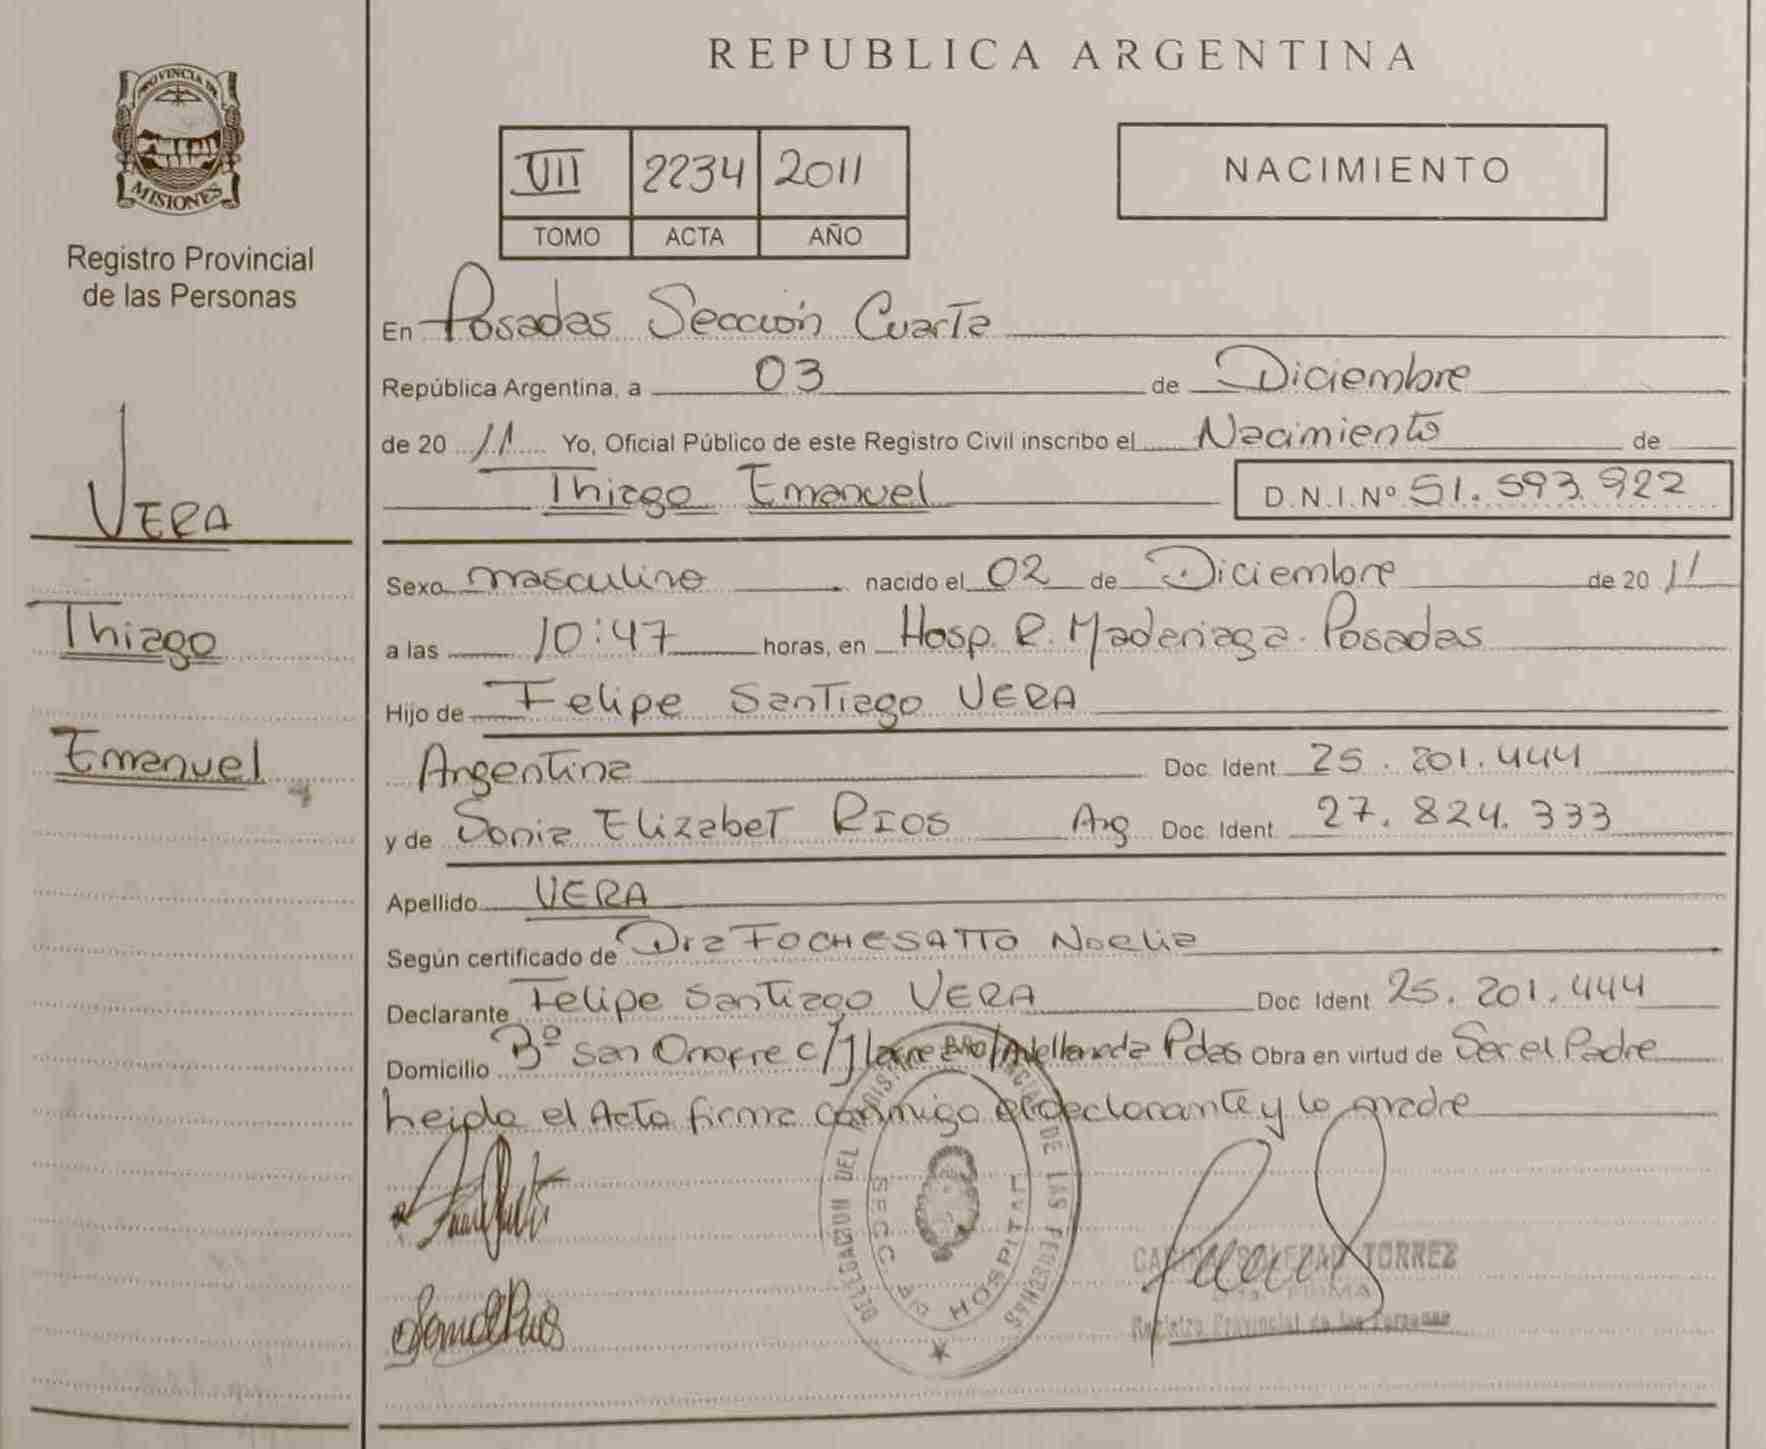 PROVINCIA DE
MISIONES
Registro Provincial
de las Personas
VERA
Thiago
Emanuel
REPUBLICA ARGENTINA
VII 2234 2011
TOMO ACTA AÑO
NACIMIENTO
En Posadas Sección Cuarta
República Argentina, a 03 de Diciembre
de 20 11 Yo, Oficial Público de este Registro Civil inscribo el Nacimiento de
Thiago Emanuel D.N.I. Nº 51.593.922
Sexo masculino nacido el 02 de Diciembre de 20 11
a las 10:47 horas, en Hosp. R. Madariaga. Posadas
Hijo de Felipe Santiago VERA
Argentina Doc. Ident. 25.201.444
y de Sonia Elizabet RIOS Arg Doc. Ident. 27.824.333
Apellido VERA
Según certificado de Dra FOCHESATTO Noelia
Declarante Felipe Santiago VERA Doc. Ident. 25.201.444
Domicilio Bº San Onofre c/ Avellaneda Pdas Obra en virtud de Ser el Padre
Leida el Acta firma conmigo el declarante y la madre
DELEGACION DEL REGISTRO PROVINCIAL DE LAS PERSONAS
SECC. 4a HOSPITAL
SOLEDAD TORREZ
FIRMA
Registro Provincial de las Personas